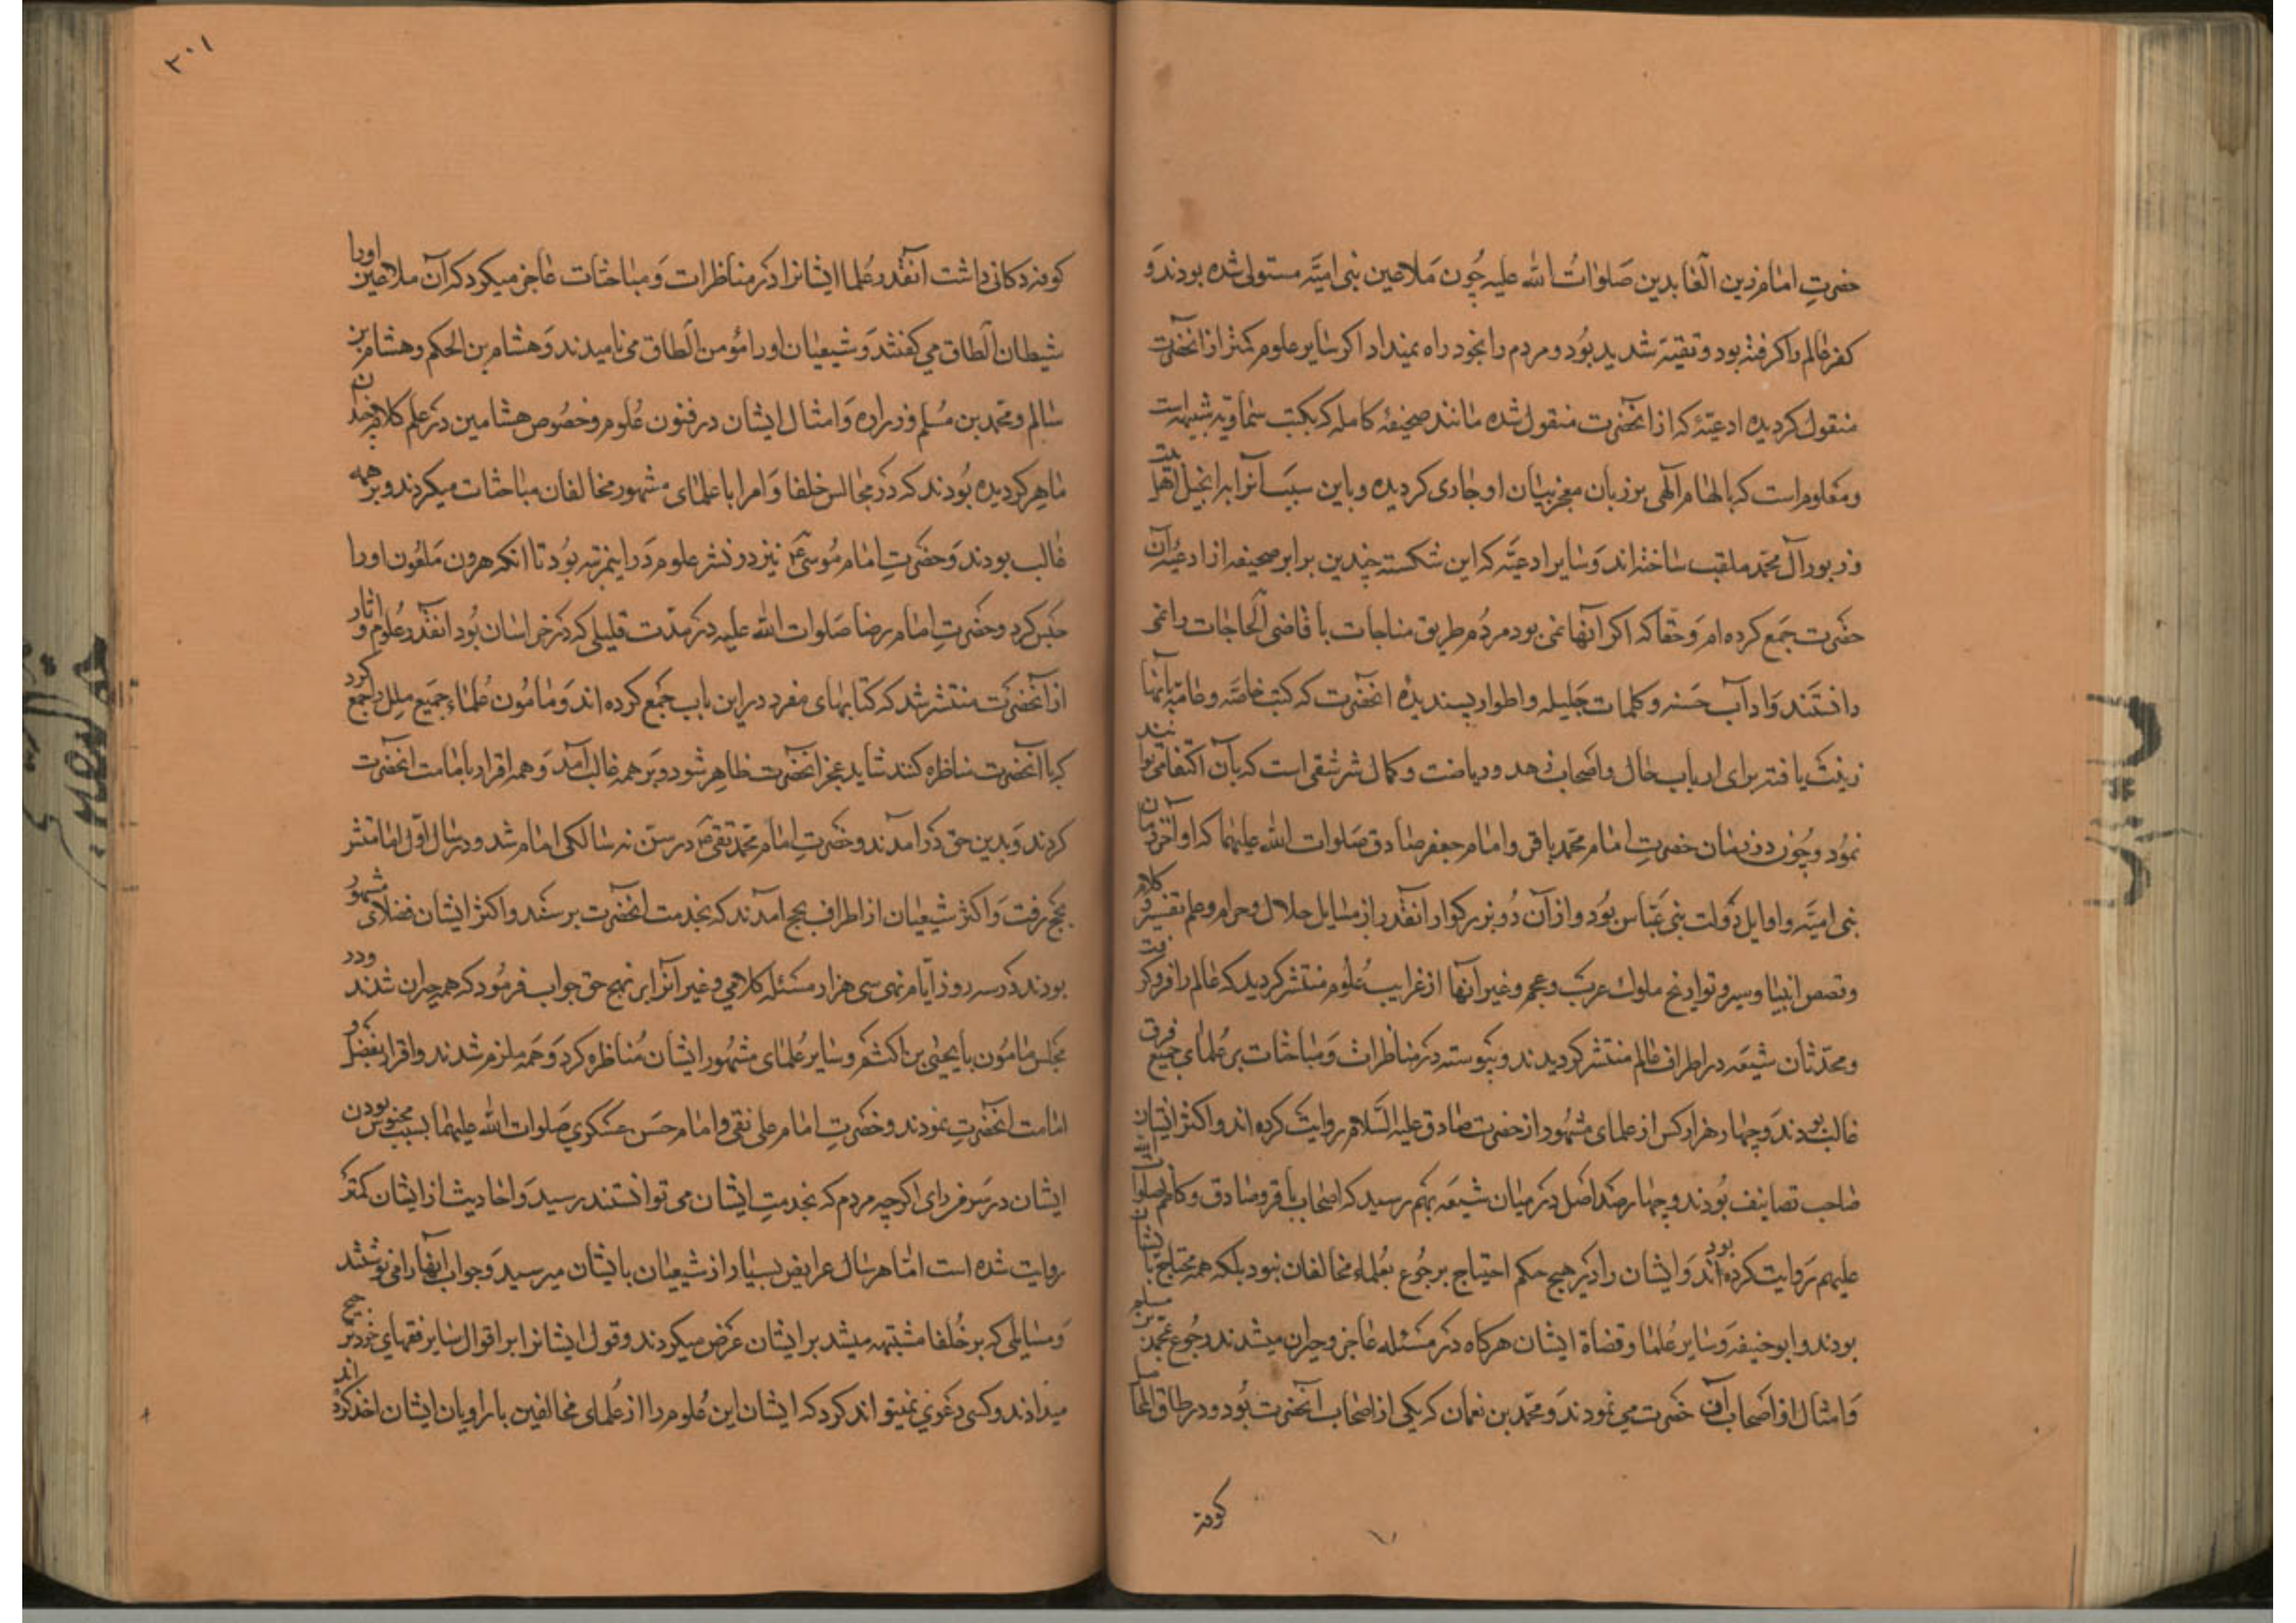 حضرتِ امام زین العابدین صَلواتُ الله علیه چُون مَلاعین بنی امیَّه مستولی شده بودند وَ
کفر عالم را کرفته بود و تقیّه شدید بُود و مردم را بخود راه نمیداد اکر سایر علوم کمتر از انحضرت
منقول کردیده ادعیّهٔ که از انحضرت منقول شده مانند صحیفهٔ کامله که بکتب سماویّه شبیه است
و معلوم است که بالهام آلهی بر زبان معجز بیان او جاری کردیده و باین سبب آنرا بر انجیل اهل بیت
و زبور آل محمّد ملقب ساخته اند وَ سایر ادعیّه که این شکسته چندین برابر صحیفه از ادعیهٔ آن
حضرت جمَع کرده ام وَ حقا که اکر آنها نمی بود مردُم طریق مناجات با قاضی الحاجات را نمی
دانستَند وَ ادآب حَسَنه و کلمات جَلیله و اطوار پسندیدهٔ انحضرت که کتب خاصّه و عامّه بآنها
زینت یافته برای ارباب حال و اصحاب زهد و ریاضت و کمال شرشقی است که بآن اکتفا می توانند
نمُود و چُون در زمان حضرتِ امام محمّد باقر و امام جعفر صادق صَلوات الله علیهما که اواخر زمان
بنی امیّه و اوایل دَولت بنی عَبّاس بوُد و از آن دُو بزرکوار انقدر از مسایل حلال و حرام و علم تفسیر و کلام
و قصص انبیا و سیر و تواریخ ملوك عرب و عجم و غیر آنها از غرایب عُلوم منتشر کردید که عالم را فرو کرفت
و محدّثان شیعَه در اطراف عالم منتشر کردیدند و پیوسته در مناظرات وَ مباحثات بر عُلمای جمیع فرق
غالب بودند وَ چهار هزار کس از علمای مشهور از حضرت صادق علیه السَّلام روایت کرده اند و اکثر ایشان
صاحب تصانیف بُودند و چهار صَد اصَل در میان شیعَه بهم رسید که اصحاب باقر و صادق و کاظم صلوات الله
علیهم رَوایت کرده بود اند وَ ایشان را در هیچ حکم احتیاج برجُوع بعُلماء مخالفان نبود بلکه همه محتاج بایشان
بودند و ابو حنیفه وَ سایر عُلما و قضاة ایشان هرکاه در مسئله عاجز و حیران میشدند رجُوع بمحمد بن مسلم
وَ امثال او از اصحاب آن حَضرت می نمودند وَ محمّد بن نعمان که یکی از اصحاب انحضرت بُود و در طاق المحامل
کوفه
۳۰۱
کوفه دکانی داشت انقدر عُلما ایشانرا در مناظرات وَ مباحثات عاجز میکرد که آن ملاعین اورا
شیطان الطاق می کفتند وَ شیعیان اورا مؤمن الطاق می نامیدند وَ هشام بن الحکم و هشام بن
سالم و محمّد بن مُسلم و زراره وَ امثال ایشان در فنون عُلوم و خصُوص هشامین در علم کلام چندان
ماهِر کردیده بُودند که در مجالس خلفا وَ امرا با علمای مشهور مخالفان مباحثات میکردند و بر همه
غالب بودند وَ حضرتِ امام مُوسیٰ ع نیز در نشر علوم دَر اینمرتبه بوُد تا انکه هرون مَلعُون اورا
حبَس کرد و حضرتِ امام رضا صَلوات الله علیه در مدّت قلیلی که در خراسان بُود انقدر عُلوم و اثار
از آنحضرت منتشر شد که کتابهای مفرد در این باب جمَع کرده اند وَ مامُون عُلماء جمیع ملل را جمع کرد
که با آنحضرت مناظره کنند شاید عجز انحضرت ظاهِر شود و بَر همه غالب آمد وَ همه اقرار بامامت انحضرت
کردند وَ بدین حق در آمدند و حضرتِ امام محمّد تقی ع در سنّ نه سالکی امام شد و در سال اوّل امامتشر
بحج رفت وَ اکثر شیعیان از اطراف بحج آمدند که بخدمت انحضرت برسند و اکثر ایشان فضلای مشهور
بودند در سه روز ایّام نهی سی هزار مسئله کلامی و غیر آنرا بر نهج حق جواب فرمُود که همه حیران شدند و در
مجلس مامُون با یحیی بن اکثم و سایر عُلمای مشهُور ایشان مُناظره کرد وَ همَه ملزم شدند و اقرار بفضل و
امامت انحضرتِ نمودند و حضرتِ امام علی نقی و امام حسَن عسکری صَلوات الله علیهما بسبب محبوس بودن
ایشان در سَر من رای اکرچه مردم که بخدمتِ ایشان می توانستند رسید وَ احادیث از ایشان کمتر
روایت شده است اما هر سال عرایض بسیار از شیعیان بایشان میرسید وَ جواب آنها را می نوشتند
وَ مسایلی که بر خُلفا مشتبهه میشد بر ایشان عَرض میکردند و قول ایشانرا بر اقوال سایر فقهای خود ترجیح
میدادند و کسی دعوی نمیتواند کرد که ایشان این عُلوم را از عُلمای مخالفین یا راویان ایشان اخذ کرده اند